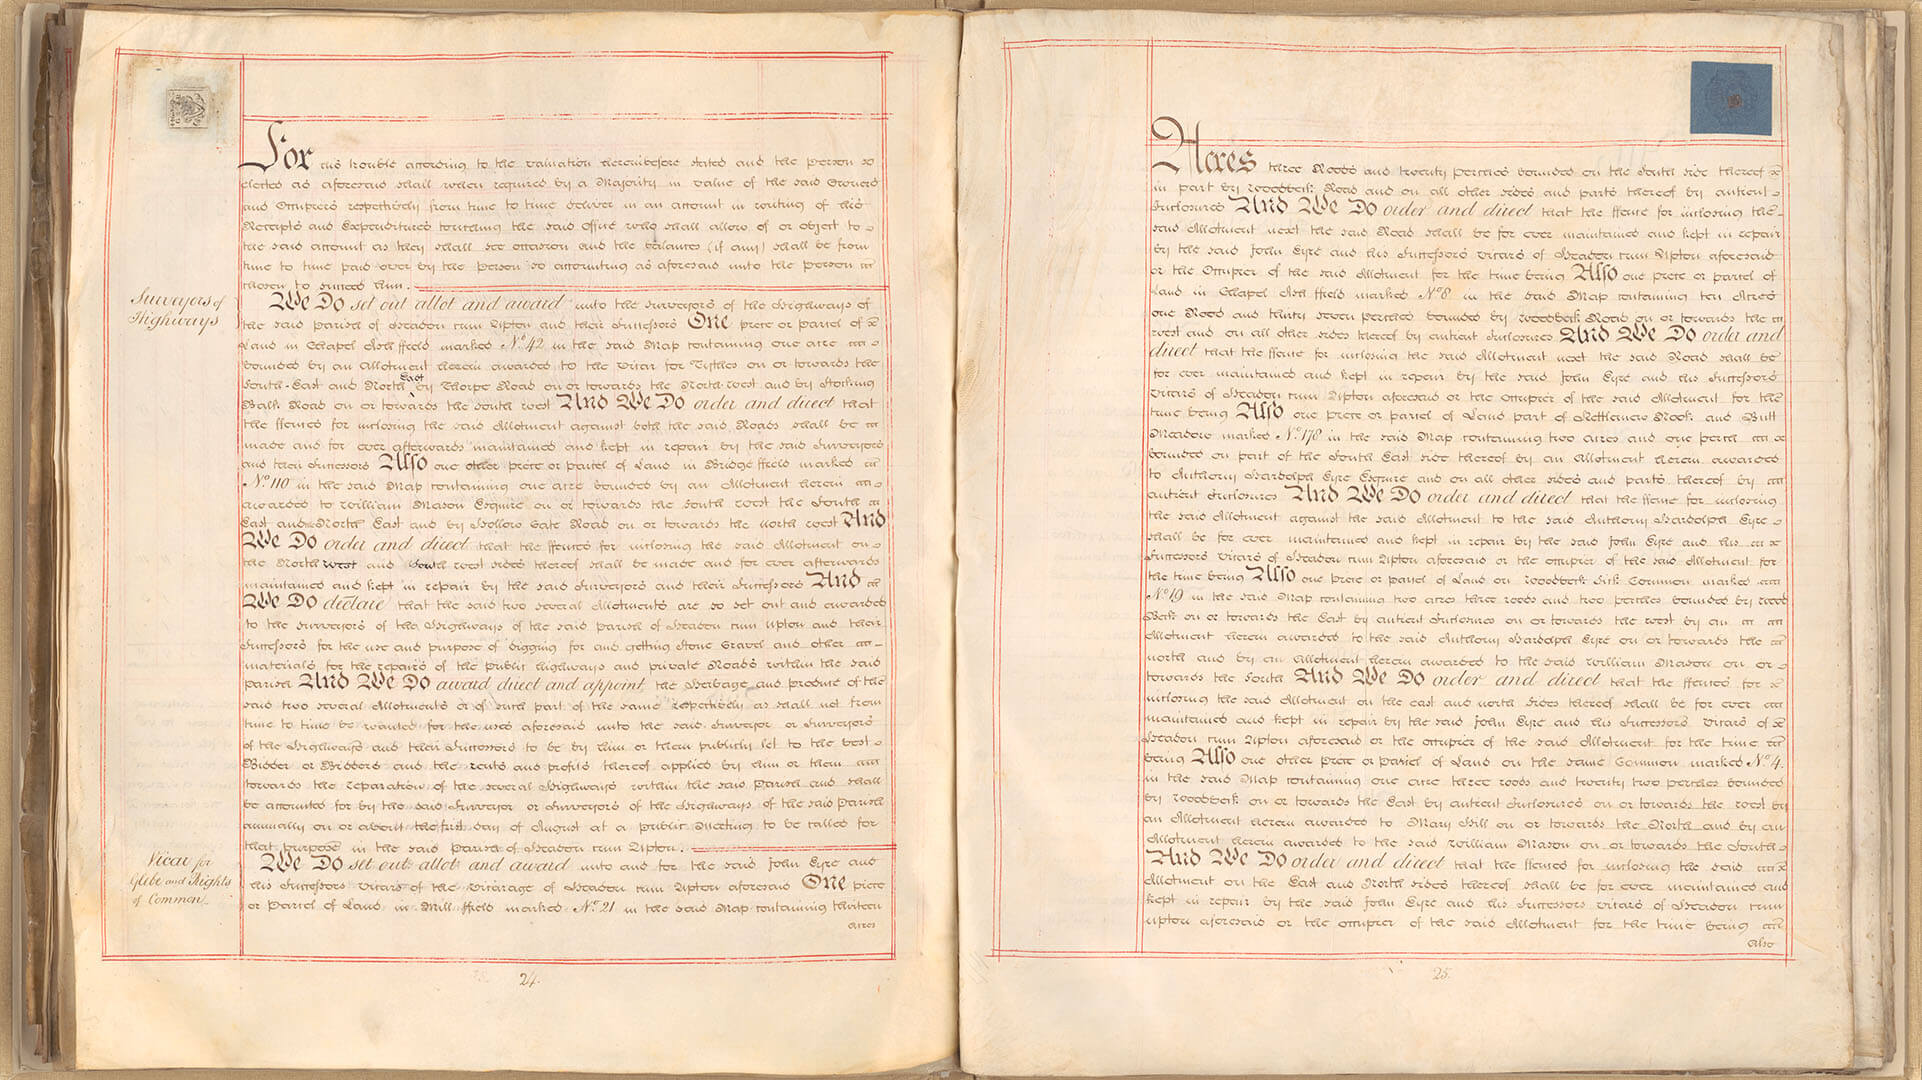 For his trouble according to the valuation hereinbefore stated and the Person so
elected as aforesaid shall when required by a Majority in value of the said Owners
and Occupiers respectively from time to time deliver in an account in writing of his
Receipts and Expenditures touching the said Office who shall allow of or object to
the said account as they shall see occasion and the balances (if any) shall be from
time to time paid over by the Person so accounting as aforesaid unto the Person
chosen to succeed him.
Surveyors of
Highways
We Do set out allot and award unto the Surveyors of the Highways of
the said parish of Headon cum Upton and their Successors One piece or parcel of
Land in Chapel Ash ffield marked No. 42 in the said Map containing one acre
bounded by an Allotment herein awarded to the Vicar for Tythes on or towards the
South-East and North East by Thorpe Road on or towards the North West and by Stocking
Balk Road on or towards the South West And We Do order and direct that
the ffences for inclosing the said Allotment against both the said Roads shall be
made and for ever afterwards maintained and kept in repair by the said Surveyors
and their Successors Also one other piece or parcel of Land in Bridge ffield marked
No. 110 in the said Map containing one acre bounded by an Allotment herein
awarded to William Mason Esquire on or towards the South West the South
East and North East and by Hollow Gate Road on or towards the North West And
We Do order and direct that the ffences for inclosing the said Allotment on
the North West and South West sides thereof shall be made and for ever afterwards
maintained and kept in repair by the said Surveyors and their Successors And
We Do declare that the said two several Allotments are so set out and awarded
to the Surveyors of the Highways of the said parish of Headon cum Upton and their
Successors for the use and purpose of digging for and getting Stone Gravel and other
materials for the repairs of the public highways and private Roads within the said
parish And We Do award direct and appoint the Herbage and produce of the
said two several Allotments or of such part of the same respectively as shall not from
time to time be wanted for the uses aforesaid unto the said Surveyor or Surveyors
of the Highways and their Successors to be by him or them publicly let to the best
Bidder or Bidders and the rents and profits thereof applied by him or them
towards the reparation of the several Highways within the said Parish and shall
be accounted for by the said Surveyor or Surveyors of the Highways of the said Parish
annually on or about the first day of August at a public Meeting to be called for
that purpose in the said Parish of Headon cum Upton.
Vicar for
Glebe and Rights
of Common
We Do set out allot and award unto and for the said John Eyre and
his Successors Vicars of the Vicarage of Headon cum Upton aforesaid One piece
or Parcel of Land in Mill ffield marked No. 21 in the said Map containing thirteen
acres
24.
Acres three Roods and twenty perches bounded on the South side thereof
in part by Woodbeck Road and on all other sides and parts thereof by antient
Inclosures And We Do order and direct that the ffence for inclosing the
said Allotment next the said Road shall be for ever maintained and kept in repair
by the said John Eyre and his Successors Vicars of Headon cum Upton aforesaid
or the Occupier of the said Allotment for the time being Also one piece or parcel of
Land in Chapel Ash ffield marked No. 8 in the said Map containing ten Acres
one Rood and thirty seven perches bounded by Woodbeck Road on or towards the
West and on all other sides thereof by antient Inclosures And We Do order and
direct that the ffence for inclosing the said Allotment next the said Road shall be
for ever maintained and kept in repair by the said John Eyre and his Successors
Vicars of Headon cum Upton aforesaid or the occupier of the said Allotment for the
time being Also one piece or parcel of Land part of Nettlemew Nook and Butt
Meadow marked No. 178 in the said Map containing two acres and one perch
bounded on part of the South East side thereof by an Allotment herein awarded
to Anthony Hardolph Eyre Esquire and on all other sides and parts thereof by
antient Inclosures And We Do order and direct that the ffence for inclosing
the said Allotment against the said Allotment to the said Anthony Hardolph Eyre
shall be for ever maintained and kept in repair by the said John Eyre and his
Successors Vicars of Headon cum Upton aforesaid or the occupier of the said Allotment for
the time being Also one piece or parcel of Land on Woodbeck Sick Common marked
No. 19 in the said Map containing two acres three roods and two perches bounded by Wood
Beck on or towards the East by antient Inclosures on or towards the West by an
Allotment herein awarded to the said Anthony Hardolph Eyre on or towards the
North and by an Allotment herein awarded to the said William Mason on or
towards the South And We Do order and direct that the ffences for
inclosing the said Allotment on the east and north sides thereof shall be for ever
maintained and kept in repair by the said John Eyre and his Successors Vicars of
Headon cum Upton aforesaid or the occupier of the said Allotment for the time
being Also one other piece or parcel of Land on the same Common marked No. 4.
in the said Map containing one acre three roods and twenty two perches bounded
by Woodbeck on or towards the East by antient Inclosures on or towards the West by
an Allotment herein awarded to Mary Hill on or towards the North and by an
Allotment herein awarded to the said William Mason on or towards the South
And We Do order and direct that the ffences for inclosing the said
Allotment on the East and North sides thereof shall be for ever maintained and
kept in repair by the said John Eyre and his Successors Vicars of Headon cum
upton aforesaid or the occupier of the said Allotment for the time being
also
25.